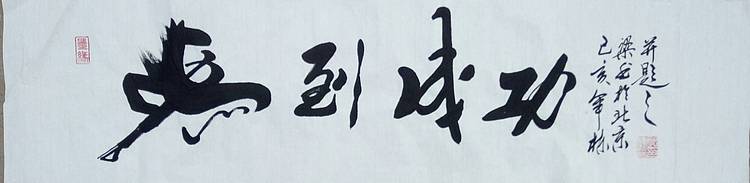 馬到成功
己亥年秋
梁於北京
并題之